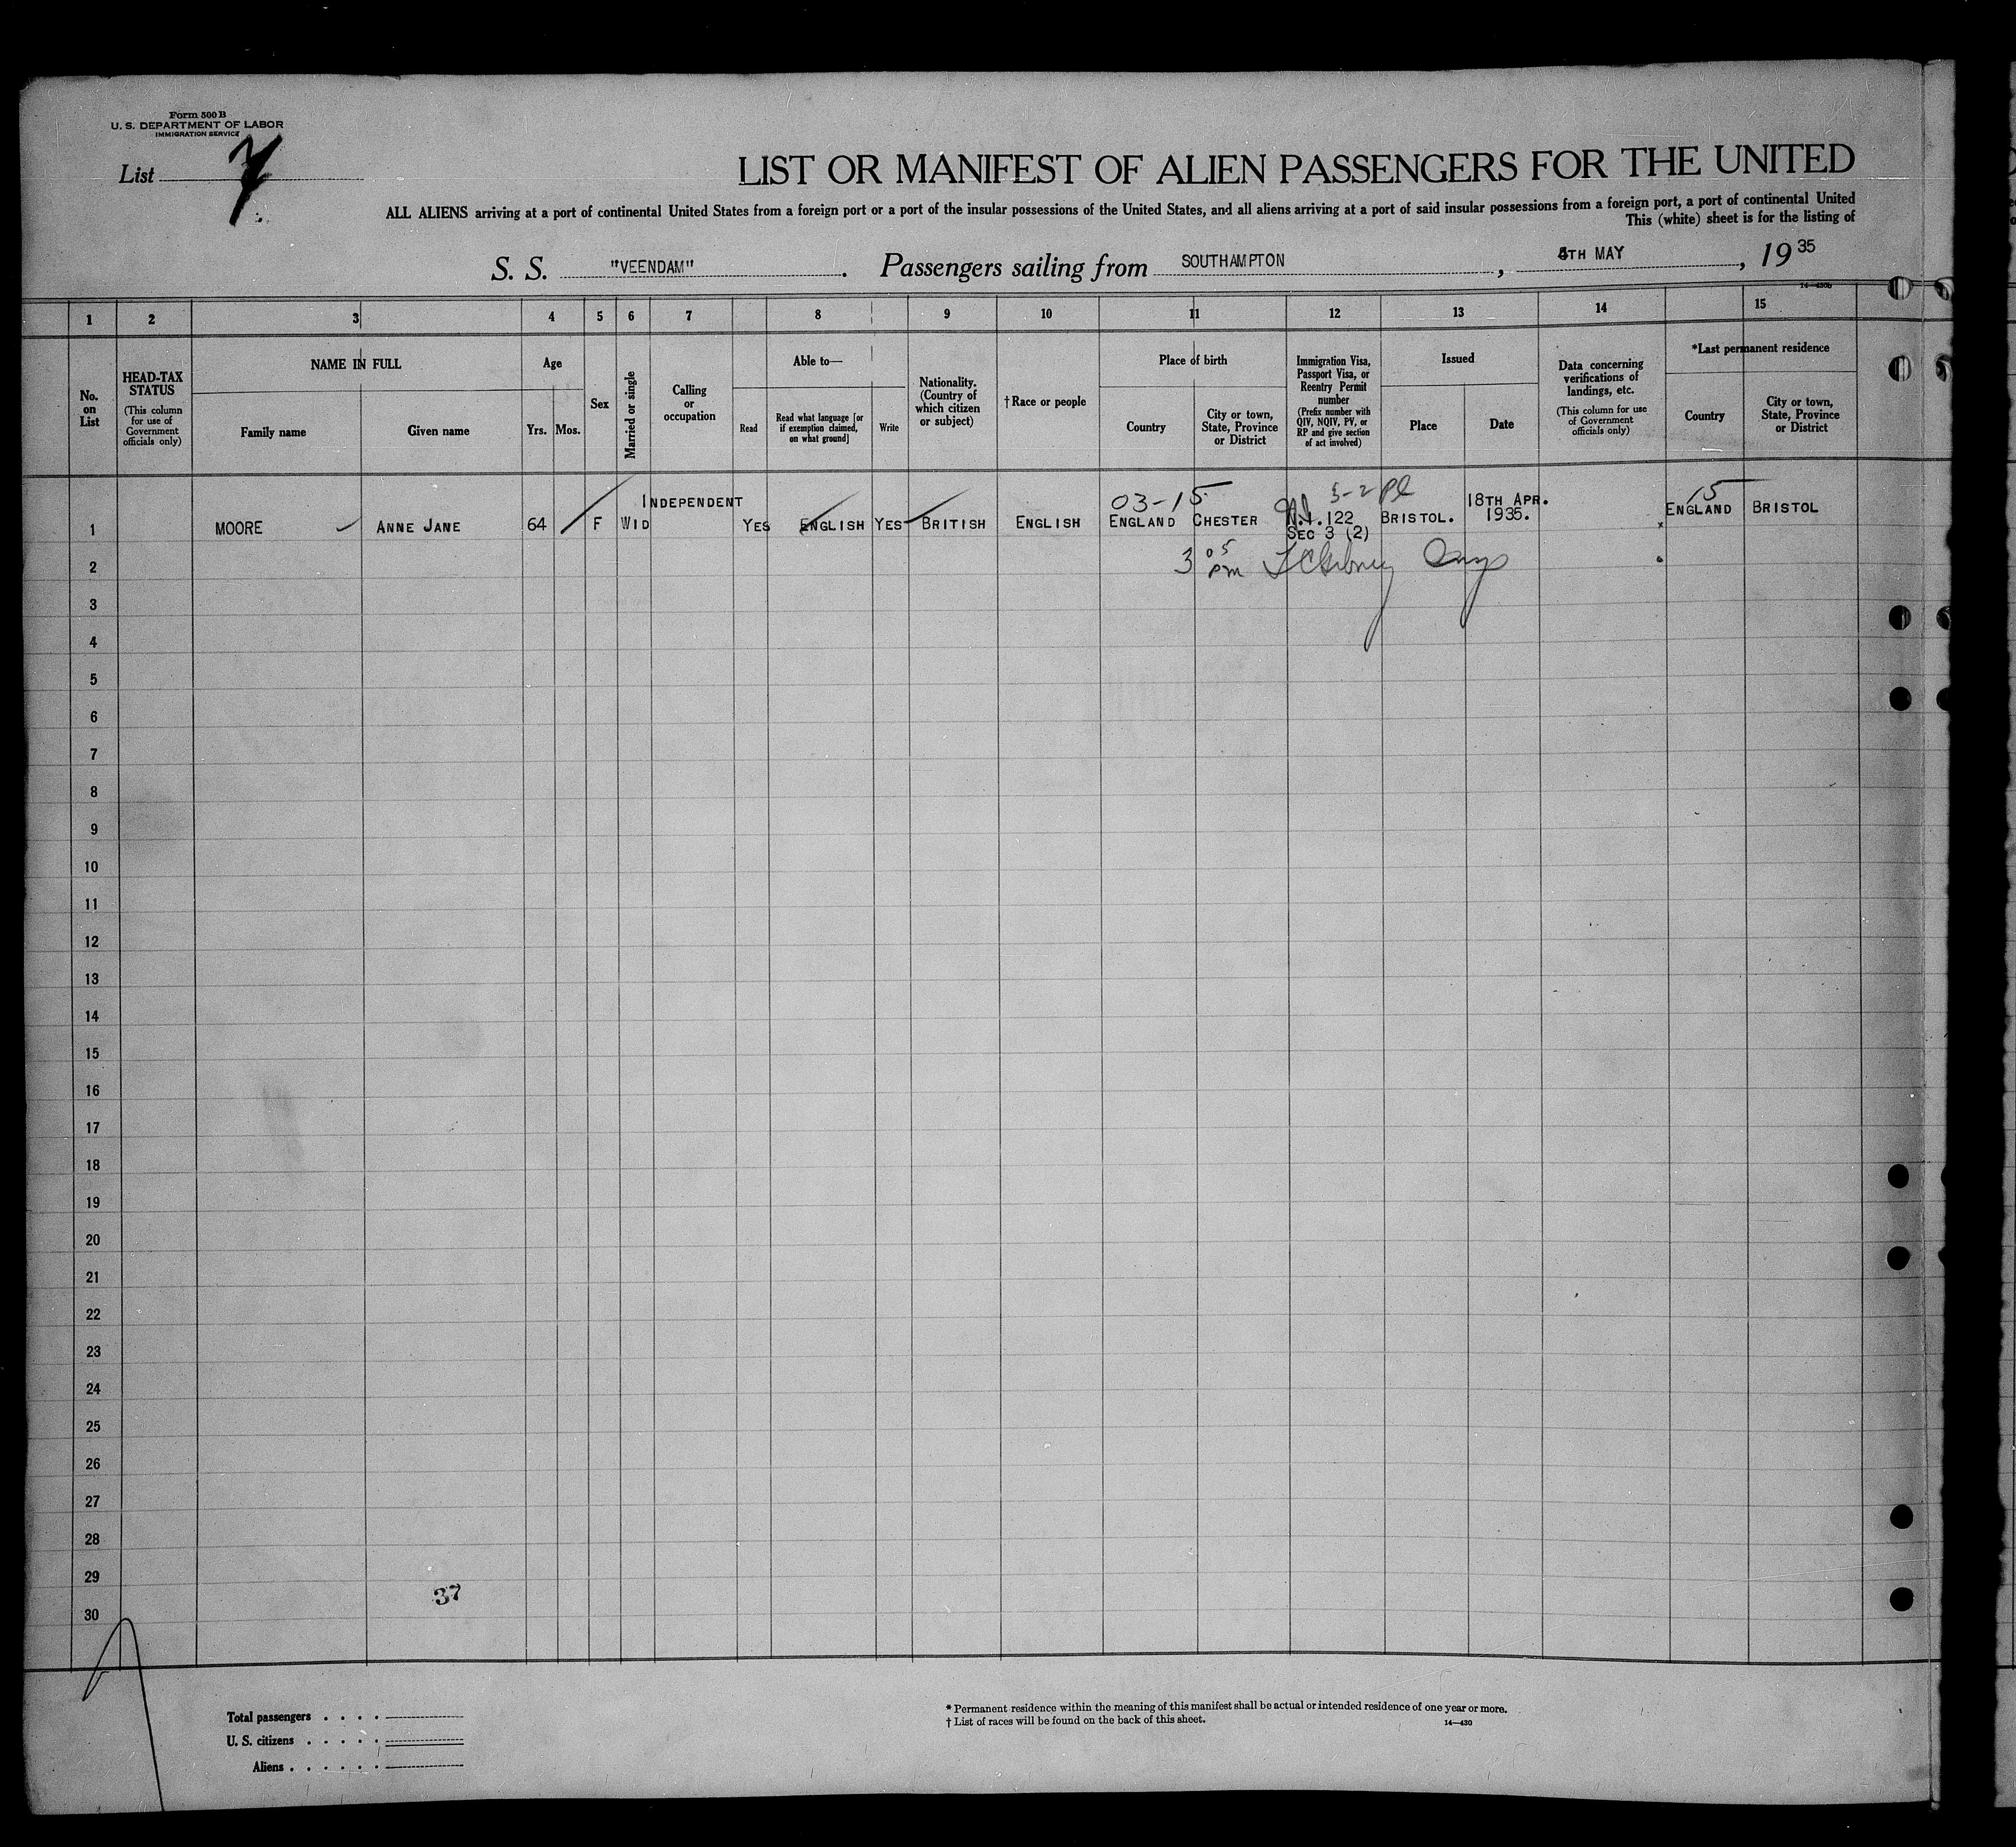 Form 500 B
U. S. DEPARTMENT OF LABOR
IMMIGRATION SERVICE
List 7
LIST OR MANIFEST OF ALIEN PASSENGERS FOR THE UNITED
ALL ALIENS arriving at a port of continental United States from a foreign port or a port of the insular possessions of the United States, and all aliens arriving at a port of said insular possessions from a foreign port, a port of continental United
This (white) sheet is for the listing of
S. S. "VEENDAM". Passengers sailing from SOUTHAMPTON, TH MAY, 1935
14—430b
1 2 3 4 5 6 7 8 9 10 11 12 13 14 15
No. on List
HEAD-TAX STATUS
(This column for use of Government officials only)
NAME IN FULL
Family name
Given name
Age
Yrs. Mos.
Sex
Married or single
Calling or occupation
Able to—
Read
Read what language [or if exemption claimed, on what ground]
Write
Nationality. (Country of which citizen or subject)
†Race or people
Place of birth
Country
City or town, State, Province or District
Immigration Visa, Passport Visa, or Reentry Permit number
(Prefix number with QIV, NQIV, PV, or RP and give section of act involved)
Issued
Place
Date
Data concerning verifications of landings, etc.
(This column for use of Government officials only)
*Last permanent residence
Country
City or town, State, Province or District
03-15 3-2 15
1 MOORE ANNE JANE 64 F WID INDEPENDENT YES ENGLISH YES BRITISH ENGLISH ENGLAND CHESTER N.I. 122 SEC 3 (2) BRISTOL. 18TH APR. 1935. ENGLAND BRISTOL
2 3 05 pm
3
4
5
6
7
8
9
10
11
12
13
14
15
16
17
18
19
20
21
22
23
24
25
26
27
28
29
37
30
Total passengers . . . .
U. S. citizens . . . . .
Aliens . . . . . .
* Permanent residence within the meaning of this manifest shall be actual or intended residence of one year or more.
† List of races will be found on the back of this sheet.
14—430